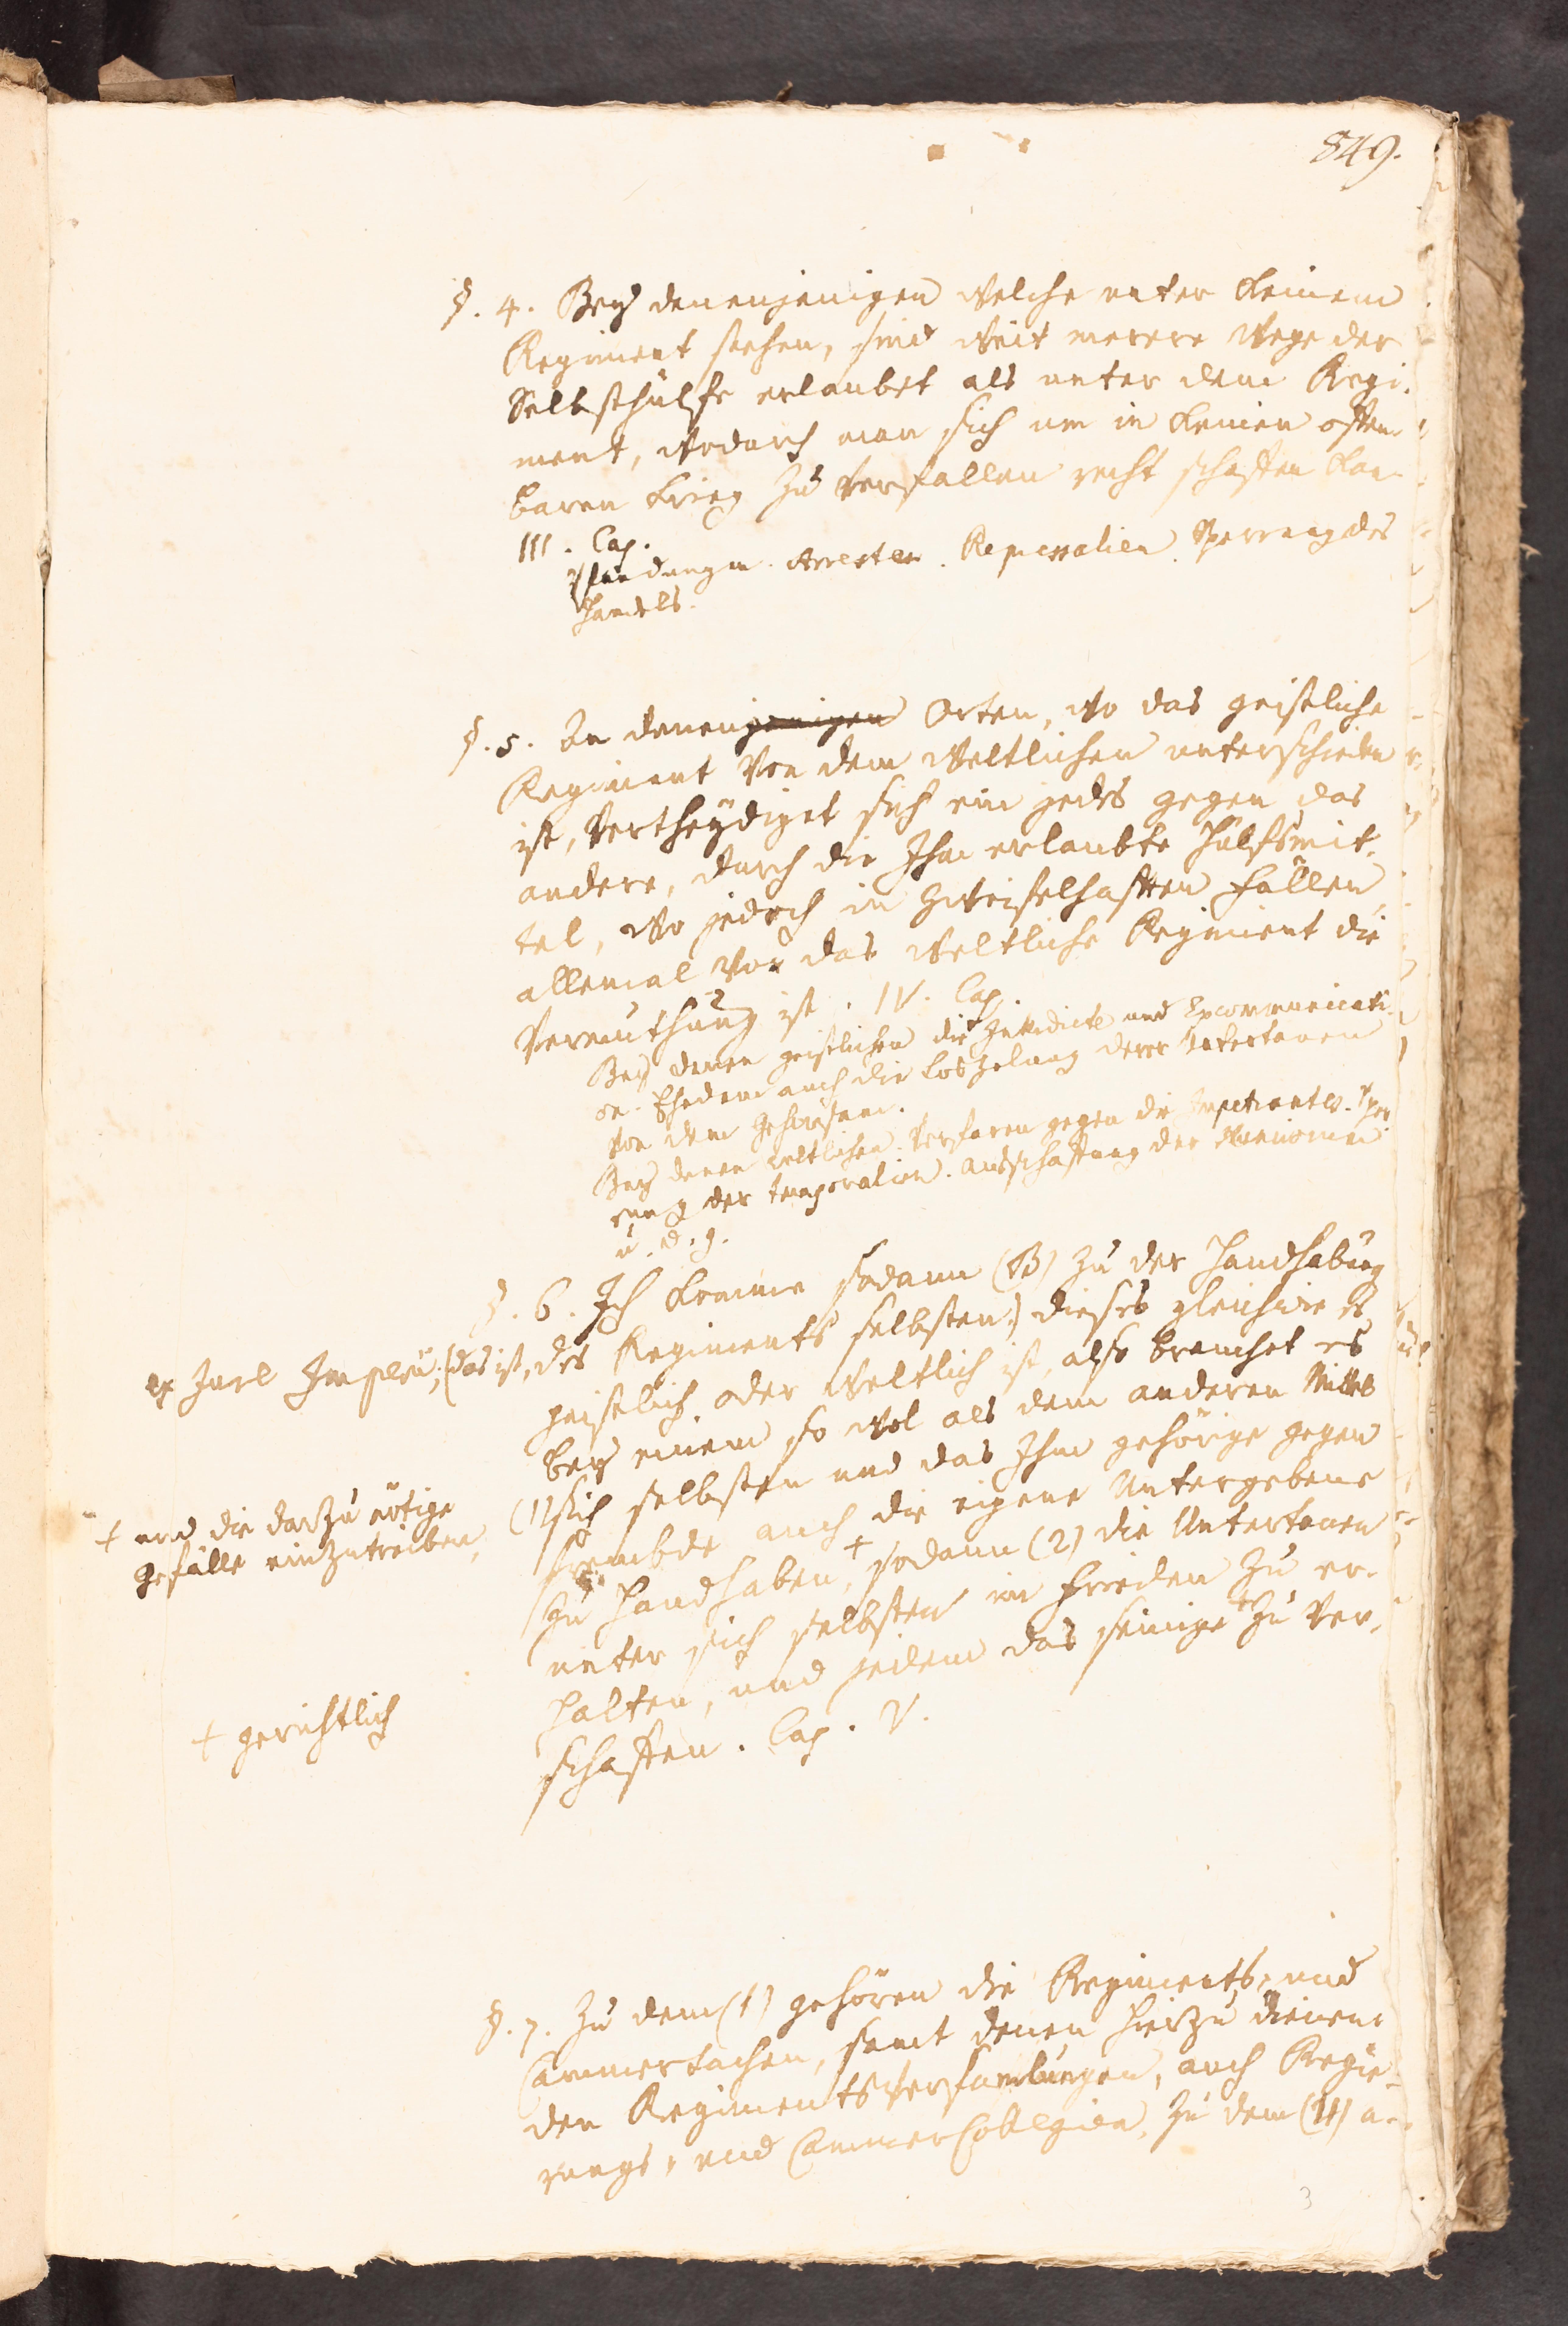 849.
§. 4. Bey denenjenigen welche unter keinem
Regiment stehen, sind weit merere wege der
Selbsthülfe erlaubet als unter dem Regi-
ment, wodurch man sich um in keinen offen-
baren krieg zu verfallen recht schaffen kan
III. Cap.
Pfändungen. Arresten. Repressalien. Sperrung des
Handels.
§. 5. An denenjenigen Orten, wo das geistliche
Regiment von dem weltlichen unterschieden
ist, vertheydiget sich ein jedes gegen das
andere, durch die Ihm erlaubte Hülfsmit-
tel, wo jedoch in zweifelhafften fällen
allemal vor das weltliche Regiment die
Vermuthung ist. IV. Cap.
Bey denen geistlichen die Interdicte und Excommunicati-
on. Ehedem auch die Loszelung derer Untertanen
von dem gehorsam.
Bey denen weltlichen. Verfaren gegen die Impetranten. Sper
rung der temporalien. Ausschaffung der
u. d. g.
§. 6. Ich komme sodann (B) zu der Handhabung
ex Jure Imperii; (das ist, des Regiments selbsten;) dieses gleichwie es
geistlich oder weltlich ist, also brauchet es
bey einem so wol als dem anderen Mittel
(1) sich selbsten und das Ihm gehörige gegen
frembde auch die eigene Untergebene
+ und die darzu nötige
gefälle einzutreiben,
zu handhaben, + sodann (2) die Untertanen
unter sich selbsten im frieden zu er-
halten, und jedem das seinige + zu ver-
+ gerichtlich
schaffen. Cap. V.
§. 7. Zu dem (1) gehören die Regiments- und
Cammersachen, samt denen hierzu dienen-
den Regimentsversamlungen, auch Regie-
rungs- und CammerCollegien. Zu dem (II) a-
3